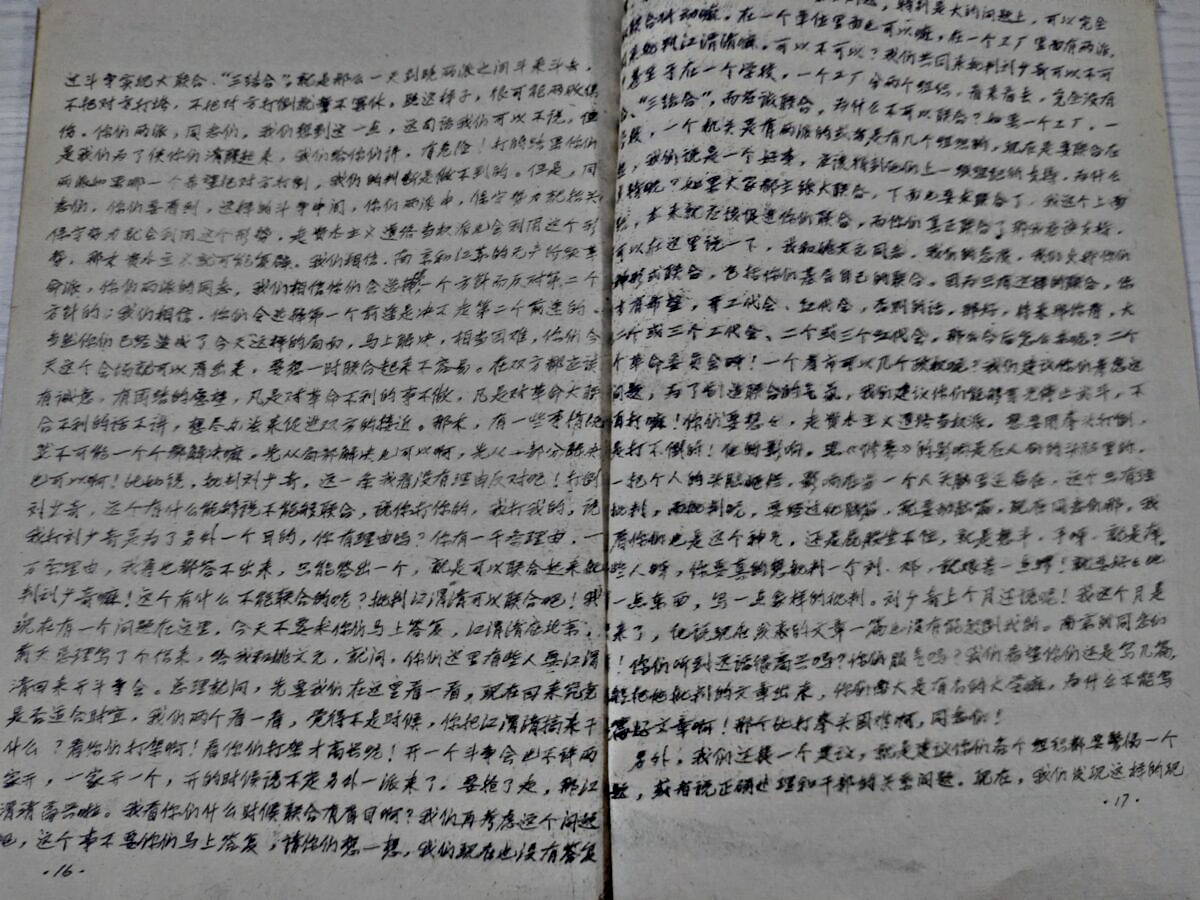 过斗争实现大联合、“三结合”，就是那么一天到晚两派之间斗来斗去，
不把对方打垮，不把对方打倒就誓不罢休，照这样子，很可能两败俱
伤。你们两派，同志们，我们想到这一点，这句话我们可以不说，但
是我们为了使你们清醒起来，我们给你们讲，有危险！打的结果你们
两派如果哪一个希望把对方打倒，我们的判断是做不到的。但是，同
志们，你们要看到，这样的斗争中间，你们两派中，保守势力就抬头
保守势力就会利用这个形势，走资本主义道路当权派也会利用这个形
势，那末资本主义就可能复辟。我们相信，南京和江苏的无产阶级革
命派，你们两派的同志，我们相信你们会选择一个方针而反对第二个
方针的；我们相信，你们会选择第一个前途是决不走第二个前途的。
当然你们已经造成了今天这样的局面，马上解决，相当困难，你们今
天这个会场就可以看出来，要想一时联合起来不容易。在双方都应该
有诚意，有团结的愿望，凡是对革命不利的事不做，凡是对革命大联
合不利的话不讲，想尽办法来促进双方的接近。那末，有一些事情
总不可能一个个都解决嘛。先从局部解决也可以啊，先从一部分解决
也可以啊！比如说，批判刘少奇，这一条我看没有理由反对吧！打倒
刘少奇，这个有什么能够说不能够联合，说你打你的，我打我的，说
我打刘少奇是为了另外一个目的，你有理由吗？你有一千条理由，一
万条理由，我看也解答不出来，只能答出一个，就是可以联合起来批
判刘少奇嘛！这个有什么不能联合的呢？批判江渭清可以联合吧！我
现在有一个问题在这里，今天不要求你们马上答复，江渭清在北京，
前天总理写了个信来，给我和姚文元，就问，你们这里有些人要江渭
清回来开斗争会。总理就问，先要我们在这里看一看，现在回来究竟
是否适合时宜，我们两个看一看，觉得不是时候，你把江渭清揪来干
什么？看你们打架啊！看你们打架才高兴呢！开一个斗争会也不许两
家开，一家开一个，开的时候说不定另外一派来了，要抢了走，那江
渭清高兴啦。我看你们什么时候联合有眉目啊？我们再考虑这个问题
吧，这个事不要你们马上答复，请你们想一想，我们现在也没有答复
·16·
特别是大的问题上，可以完全
联合行动嘛。在一个单位里面也可以嘛，在一个工厂里面有两派，
来批判江渭清嘛，可以不可以？我们共同来批判刘少奇可以不可
甚至于在一个学校，一个工厂分两个组织，看来看去，完全没有
“三结合”，而应该联合，为什么不可以联合？如果一个工厂，一
学校，一个机关是有两派的或者是有几个组织的，现在是要联合在
，我们说是一个好事，应该得到他们上一级组织的支持，为什么
呢？如果大家都主张大联合，下面也要求联合了，我这个上面
，本来就应该促进你们联合，而你们真正联合了那就应该支持，
可以在这里说一下，我和姚文元同志，我们的态度，我们支持你们
种形式联合，包括你们基层自己的联合。因为只有这样的联合，你
才有希望，开工代会、红代会，否则的话，那好，将来那你看，大
二个或三个工代会、二个或三个红代会，那么今后怎么办呢？二个
个革命委员会啊！一个省市可以几个政权呢？我们建议你们考虑这
问题，为了创造联合的气氛，我们建议你们能够首先停止武斗，不
打嘛！你们要想想，走资本主义道路当权派，想要用拳头打倒，
是打不倒的！他的影响，黑《修养》的影响是在人们的头脑里的，
一把个人的头脑，影响在每一个人头脑里还存在，这个只有经
批判，而批判呢，要经过他脑筋，就要动脑筋，现在同志们那，我
看你们也是这个神气，还是屁股坐不住，就是想斗，手呀，就是痒，
些人呀，你要真的想批判一个刘、邓，就跟着一点啰！就要认真地
一点东西，写一点象样的批判。刘少奇上个月还说呢！我这个月是
来了，他说现在发表的文章一篇也没有能驳倒我的。南京的同志们
！你们听到这话很高兴吗？你们服气吗？我们希望你们还是写几篇
能把他批判的文章出来，你们南大是有名的大学嘛，为什么不能写
篇好文章啊！那个比打拳头困难啊，同志们！
另外，我们还提一个建议，就是建议你们各个组织都要警惕一个
题，或者说正确处理和干部的关系问题。现在，我们发现这样的现
·17·